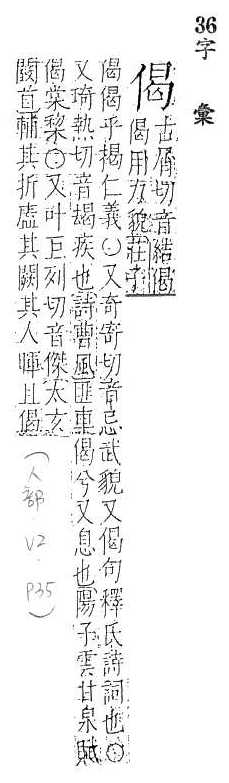 36字 彙
偈 古屑切音結偈
偈用力貌莊子
偈偈乎揭仁義〇又奇寄切音忌武貌又偈句釋氏詩詞也〇
又琦熱切音竭疾也詩曹風匪車偈兮又息也陽子雲甘泉賦
偈棠黎〇又叶巨列切音傑太玄
闕首輔其折廅其闕其人暉且偈
(人部 V2 P35)